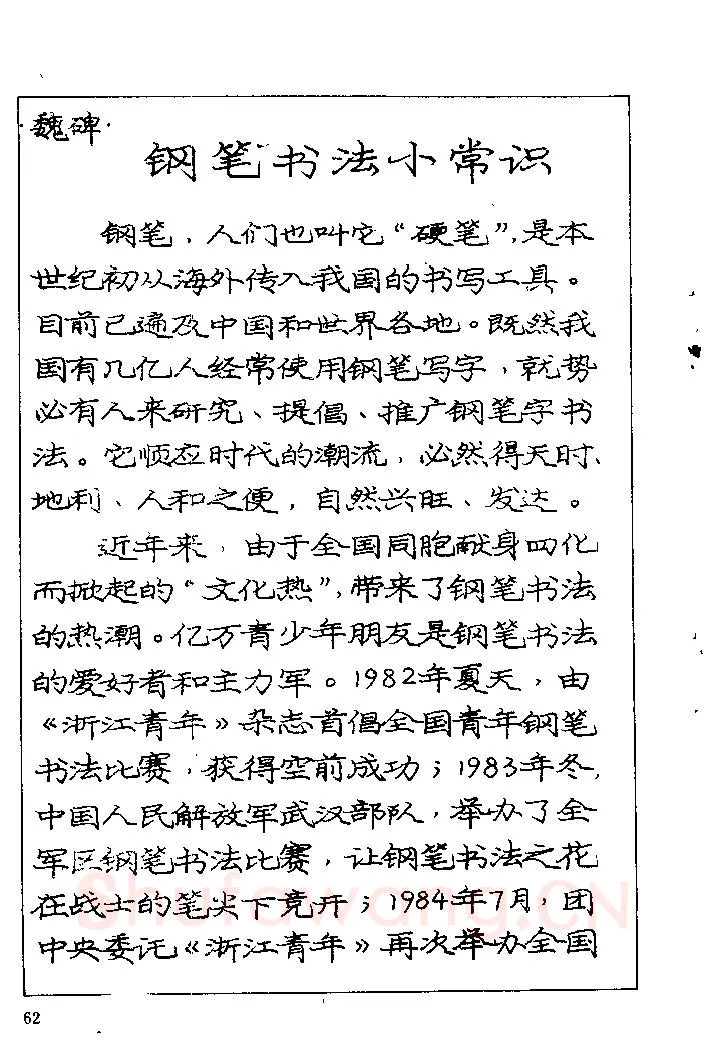 ·魏碑·
钢笔书法小常识
钢笔，人们也叫它“硬笔”，是本
世纪初从海外传入我国的书写工具。
目前已遍及中国和世界各地。既然我
国有几亿人经常使用钢笔写字，就势
必有人来研究、提倡、推广钢笔字书
法。它顺应时代的潮流，必然得天时、
地利、人和之便，自然兴旺、发达。
近年来，由于全国同胞献身四化
而掀起的“文化热”，带来了钢笔书法
的热潮。亿万青少年朋友是钢笔书法
的爱好者和主力军。1982年夏天，由
《浙江青年》杂志首倡全国青年钢笔
书法比赛，获得空前成功；1983年冬，
中国人民解放军武汉部队，举办了全
军区钢笔书法比赛，让钢笔书法之花
在战士的笔尖下竞开；1984年7月，团
中央委托《浙江青年》再次举办全国
Shufawang.CN
62